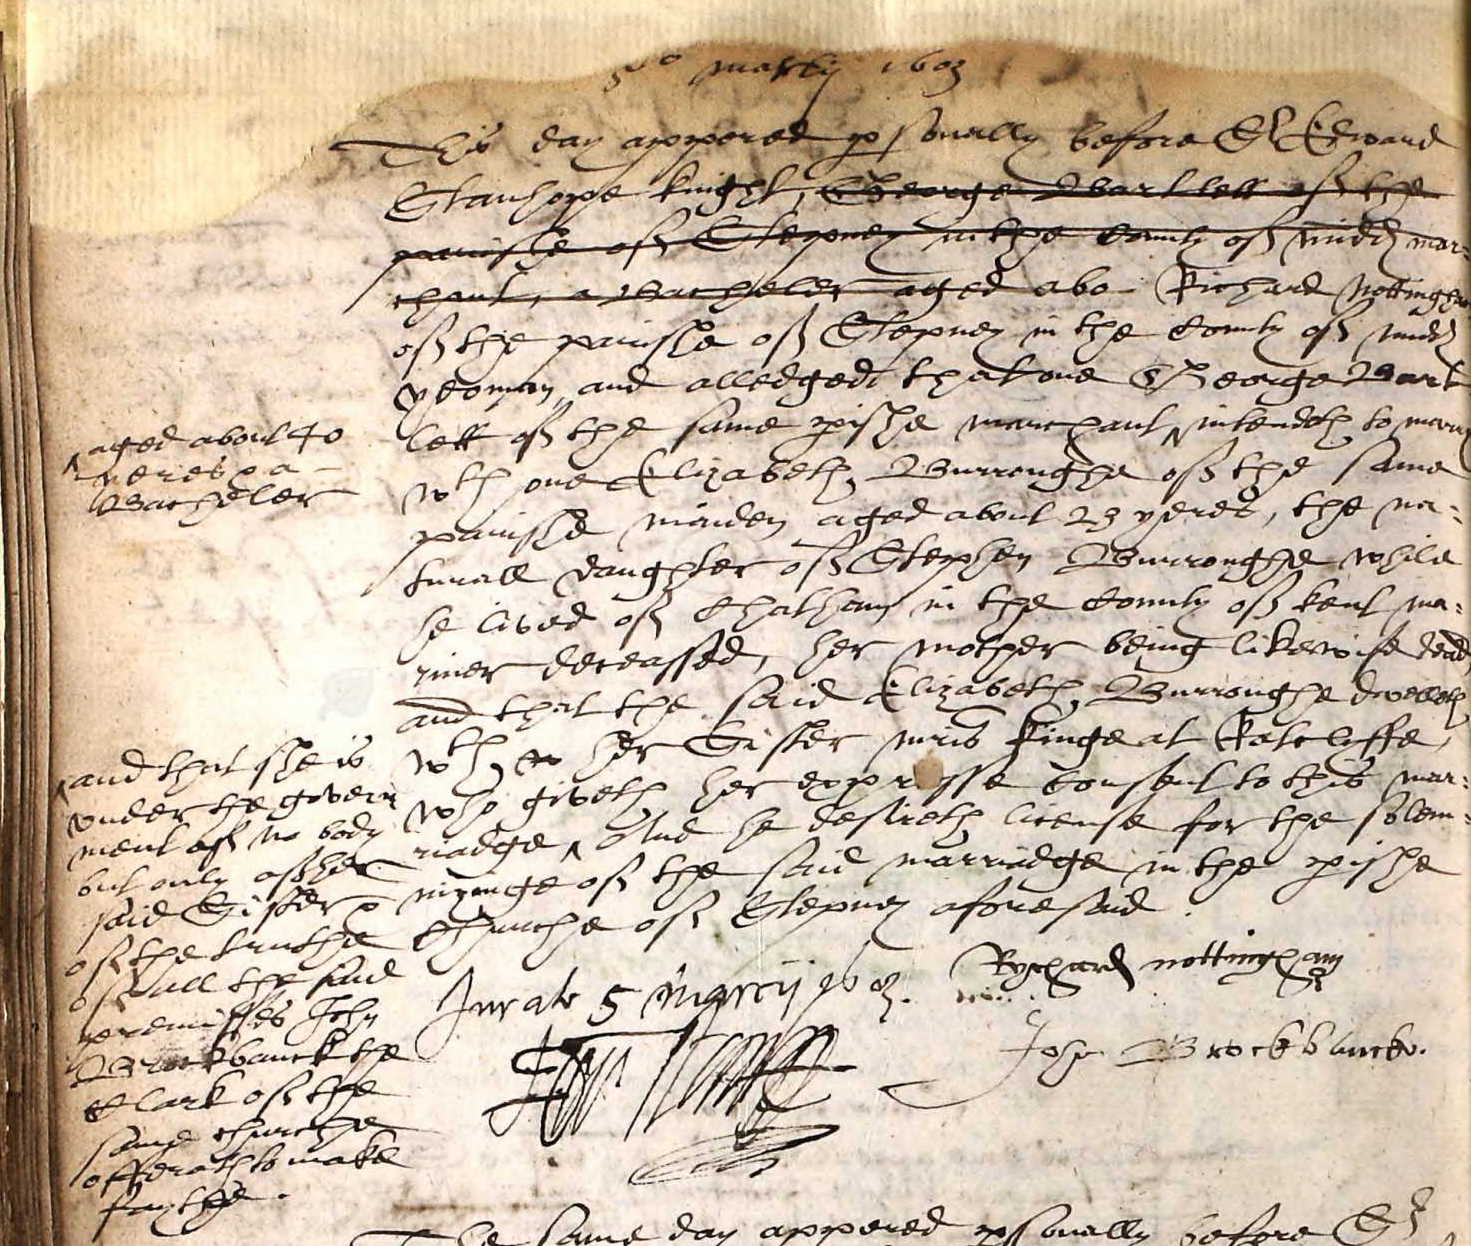 5to martij 1603
This day appeared psonally before Sr Edward
Stanhope knight, George Bartlett of the
parishe of Stepney in the county of midd mar-
chant, a Bacheler aged abo Richard Nottingham
of the parishe of Stepney in the county of midd
yeoman and alledged that one George Bart
lett of the same pishe marchant, intendeth to marry
wth one Elizabeth Burroughe of the same
parishe maiden aged about 23 yeres, the na-
turall daughter of Stephen Burroughe while
he lived of Chatham in the county of kent ma-
riner deceassed, her mother being likewise dead
and that the said Elizabeth Burroughe dwelleth
wth her Sister mris Kinge at Ratcliffe,
who giveth her expresse consent to this mar-
riadge, And he desireth license for the solem-
nizinge of the said marriadge in the pishe
Churche of Stepney aforesaid.
aged about 40
yeres a
Bacheler
and that she is
under the govern
ment of no body
but only of her
said Sister
of the truthe
of all the said
premisses John
Brockbanck the
Clark of the
same churche
offereth to make
faythe.
Jurat 5 Martij 1603.
Rychard nottingham
John Brockbancke.
The same day appered psonally before Sr